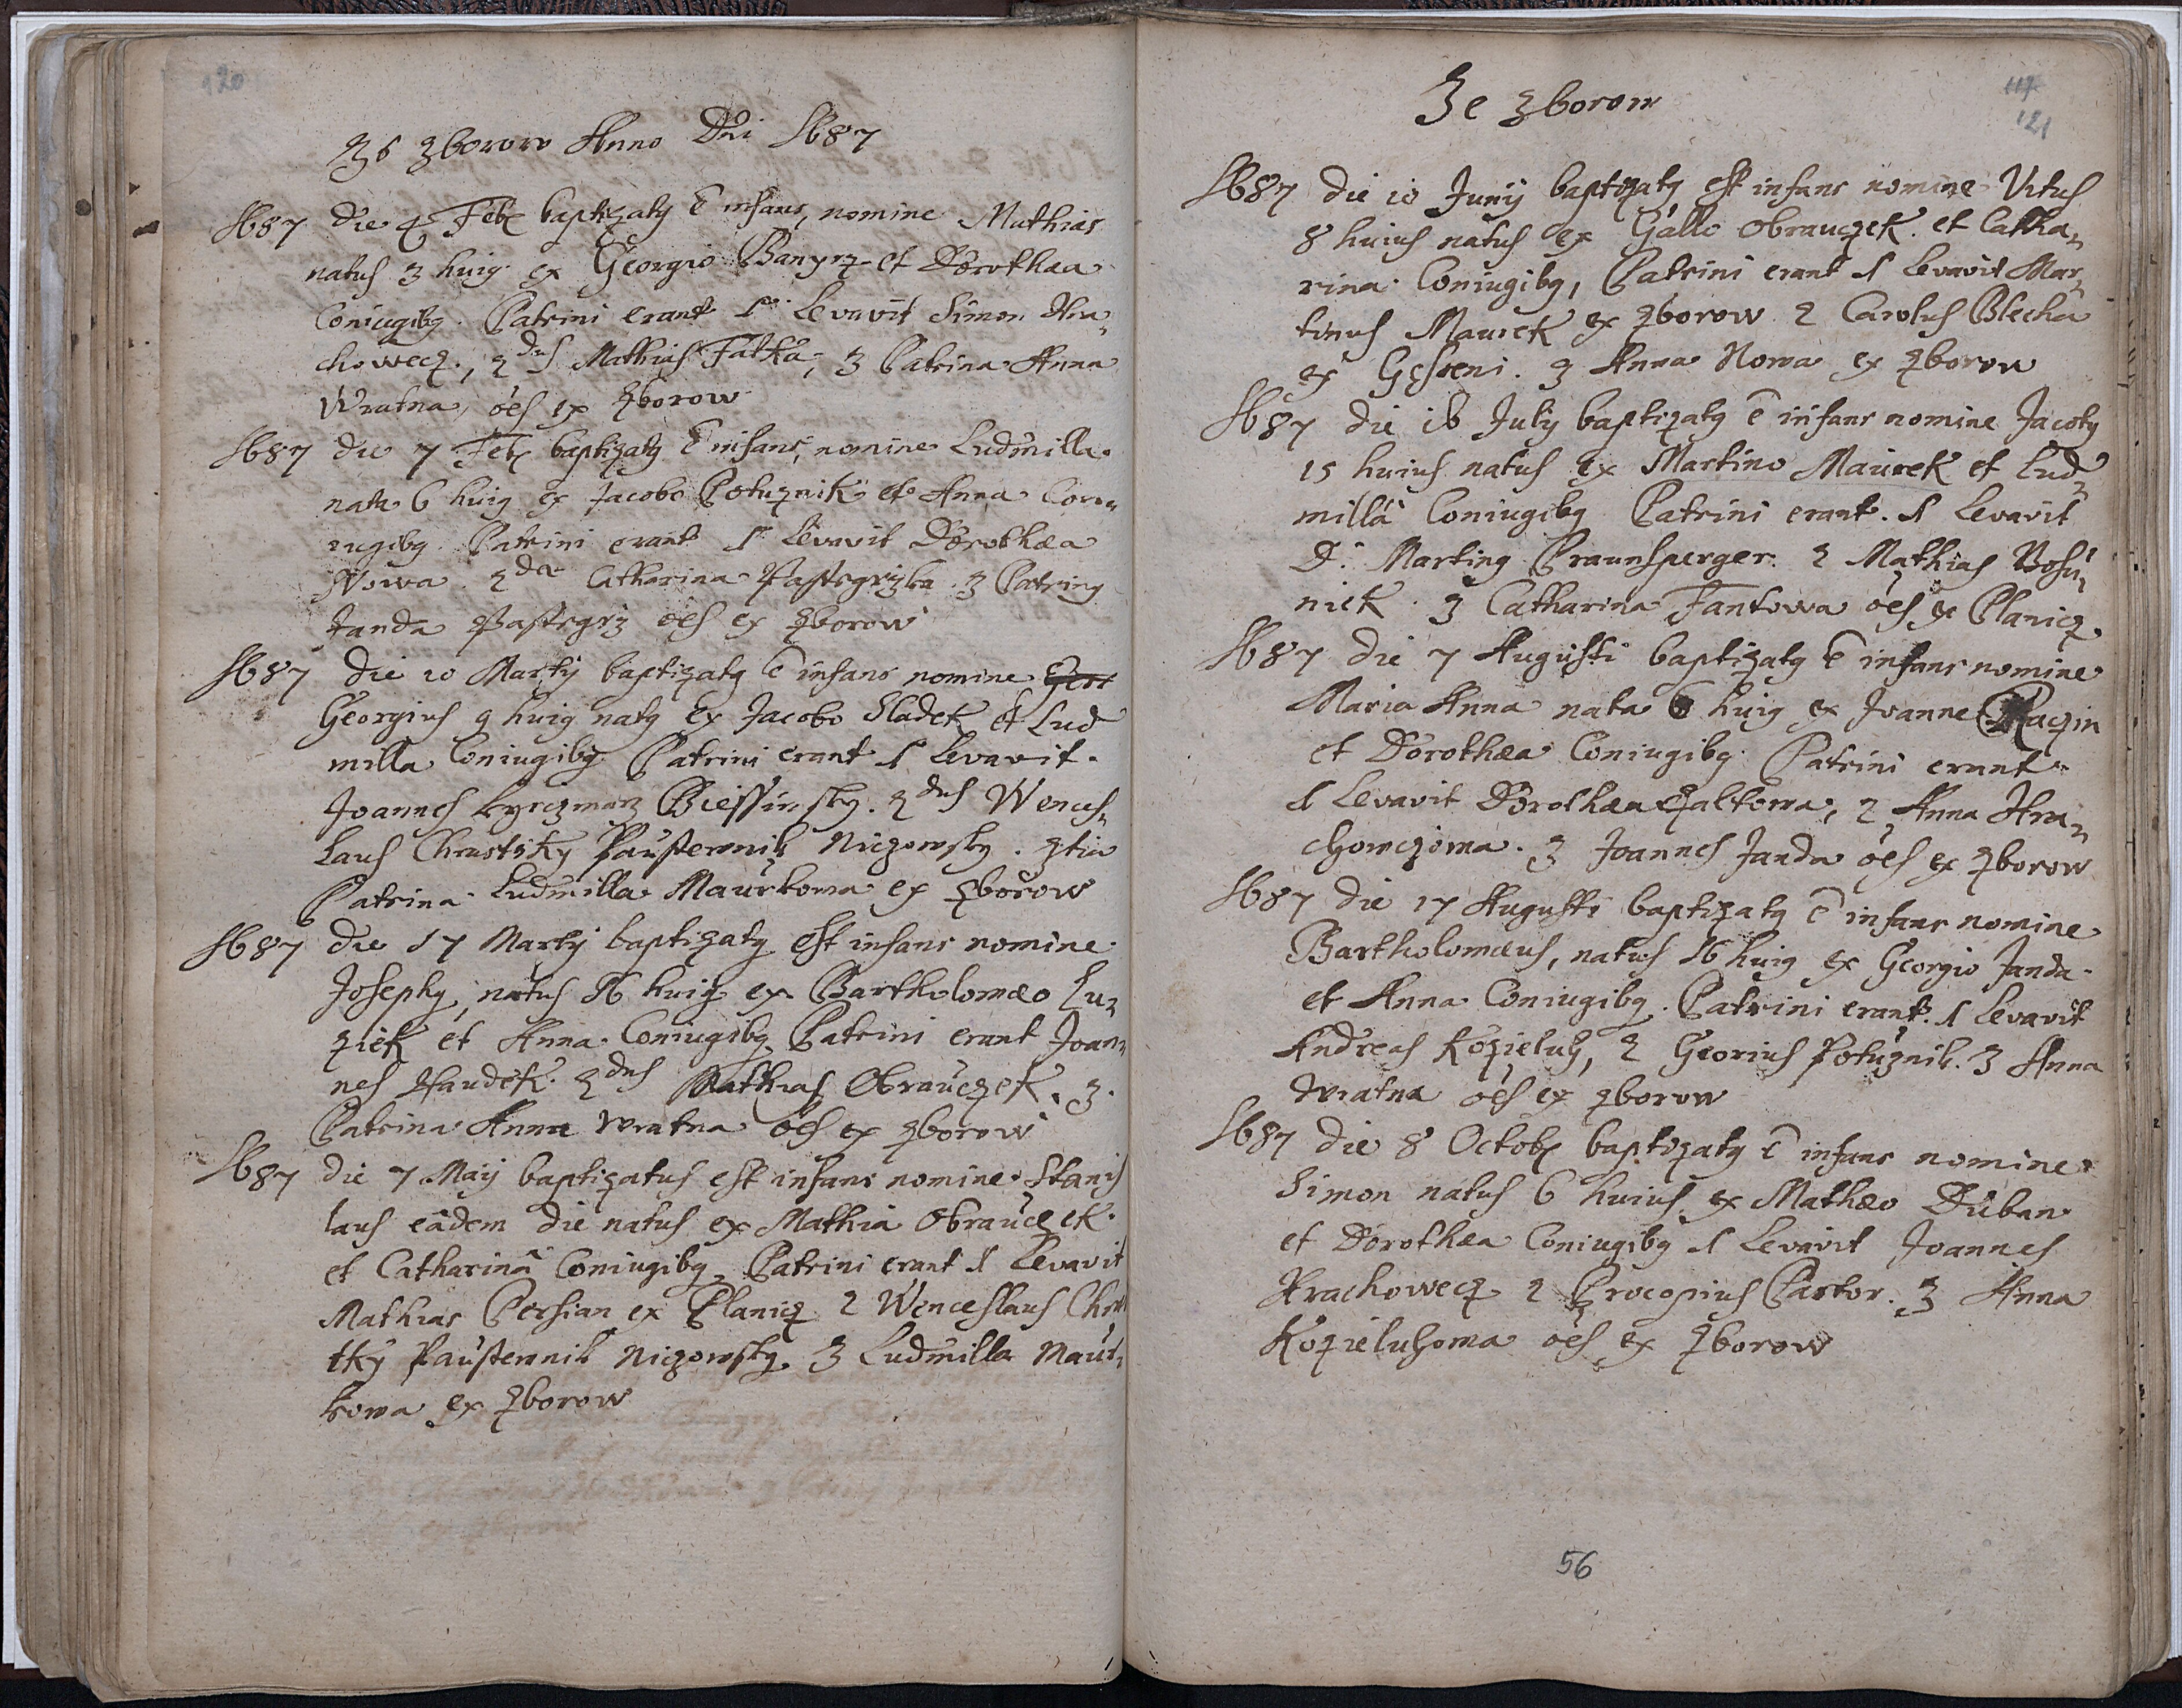 120
Ze Zborow Anno Dni 1687
1687 die 4 Feb baptizaty ē infans, nomine Mathias
natus 3 huig ex Georgio Banyrz et Dorothæa
Coniugiby. Patrini erant 1us Levavit Simon Hra,
chowecz., 2dus Mathius Fatka, 3 Patrina Anna
Wratna, oēs ex Zborow
1687 die 7 Feb baptizaty ē infans, nomine Ludmilla
nata 6 huig ex Jacobo Potuznik et Anna Con,
iugiby Patrini erant 1 Levavit Dorothæa
Nowa 2da Catharina Pastegrzka 3 Patriny
Janda Pastegrz oēs ex Zborow
1687 die 10 Martij baptizaty ē infans nomine
Georgius 9 huig naty Ex Jacobo Sladek et Lud
milla Coniugiby Patrini erant 1 Levavit
Joannes kyrczmarz Biessinsky. 2dus Wences,
laus Chrastsky Paustewnik Niczowsky. 3tia
Patrina Ludmilla Maurkowa ex Zborow
1687 die 17 Martij baptizaty est infans nomine
Josephy, natus 16 huig ex Bartholomæo Lu,
ziek et Anna Coniugiby Patrini erant Joan,
nes Haudek 2dus Mathias Obrauczek. 3.
Patrina Anna wratna oēs ex Zborow
1687 die 7 Maij baptizatus est infans nomine Stanis
laus eâdem die natus ex Mathia Obrauczek
et Catharinâ Coniugiby Patrini erant 1 Levavit
Mathias Persian ex Planicz 2 Wenceslaus
tky Paustewnik Niczowsky 3 Ludmilla Maur,
kowa ex Zborow
Ze Zborow
117
121
1687 die 10 Junij baptizaty est infans nomine Vitus
8 huius natus ex Gallo Obrauczek et Catha,
rina Coniugiby, Patrini erant 1 Levavit Mar,
tinus Maurek ex Zborow 2 Carolus Blecha
ex 3 Anna Nowa ex Zborow
1687 die 16 July baptizaty ē infans nomine Jacoby
15 huius natus ex Martino Maurek et Lud,
milla Coniugiby Patrini erant. 1 Levavit
D. Martiny Praunsperger 2 Mathias Bosu,
niek 3 Catharina Fantowa oēs ex Planicz.
1687 die 7 Augusti baptizaty ē infans nomine
Maria Anna nata 6 huig ex Joanne Raczin
et Dorothæa Coniugiby Patrini erant
1 Levavit Dorothæa Zaltowa, 2 Anna Hra,
chowczowa. 3 Joannes Janda oēs ex Zborow
1687 die 17 Augusti baptizaty ē infans nomine
Bartholomæus, natus 16 huig ex Georgio Janda
et Anna Coniugiby. Patrini erant. 1 Levavit
Andreas Kozieluh, 2 Georius Potuznik. 3 Anna
Wratna oēs ex Zborow
1687 die 8 Octob baptizaty ē infans nomine
Simon natus 6 huius ex Mathæo Duban
et Dorothæa Coniugiby 1 Levavit Joannes
Hrachowecz 2 Procopius Pastor. 3 Anna
Kozieluhowa oēs ex Zborow
56